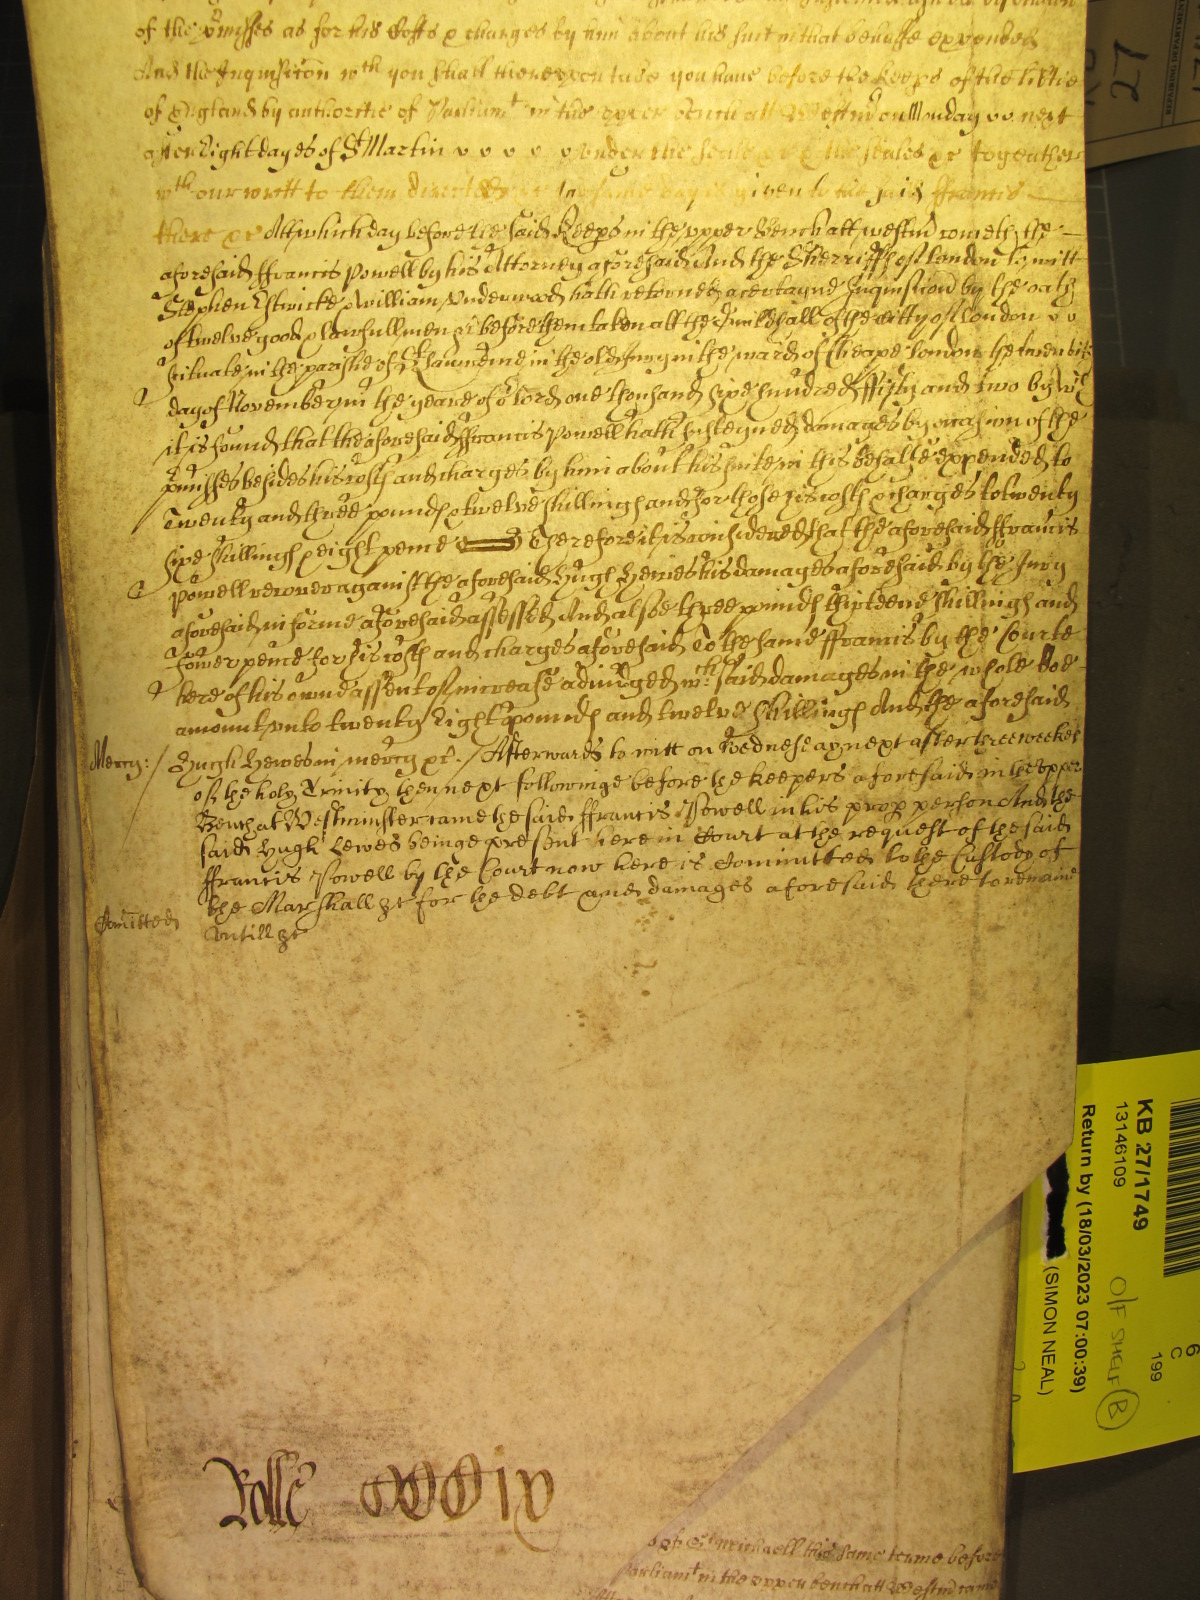 of the p'misses as for his Costs & charges by him about his suit in that behalfe expended
And the Inquisicon wch you shall thereupon take you have before the keeps of the lib'tie
of England by authoritie of Parliamt in the upper Bench att Westm' on Munday next
after Eight dayes of St Martin under the seale &c & the seales &c togeather
wth our writt to them directed &c the same day is given to the said ffrancis
there &c Att which day before the said Keeps in the upper Bench att westm' cometh the
aforesaid ffrancis Powell by his Attorney aforesaid And the Sherriffs of London to witt
Stephen Estwicke & William Underwood hath retorned a certayne Inquisicon by the oath
of twelve good & lawfull men &c before them taken att the Guildhall of the citty of London
scituate in the parishe of St Lawrence in the old Jury in the ward of Cheape London the
day of November in the yeare of or Lord one thousand sixe hundred ffifty and two by wch
it is found that the aforesaid ffrancis Powell hath susteyned damages by occasion of the
p'misses besides his costs and charges by him about his suite in this behalfe expended to
Twenty and three pounds & twelve shillings and for those his costs & charges to twenty
sixe shillings & eight pence Therefore it is considered that the aforesaid ffrancis
Powell recover against the aforesaid Hugh Lewes his damages aforesaid by the Jury
aforesaid in forme aforesaid assessed And alsoe three pounds thirteene shillings and
fower pence for his costs and charges aforesaid To the same ffrancis by the Courte
here of his owne assent of increase adiudged wch said damages in the whole doe
amount unto twenty Eight pounds and twelve shillings And the aforesaid
Mercy:/ Hugh Lewes in mercy &c./ Afterwards to witt on Wednesday next after three weekes
of the holy Trinity then next followinge before the keepers aforesaid in the upper
Bench at Westminster came the said ffrancis Powell in his prop person And the
said Hugh Lewes beinge present here in Court at the request of the said
ffrancis Powell by the Court now here is Comitted to the Custody of
the Marshall &c for the debt and damages aforesaid there to remaine
Comitted untill &c
Rolle
of St michaell this same terme before
parliamt in the upper bench att Westm' came
27
REPAIRING DEPARTMENT
KB 27/1749
13146109
Return by (18/03/2023 07:00:39)
(SIMON NEAL)
O/F SHELF B
199
C
6